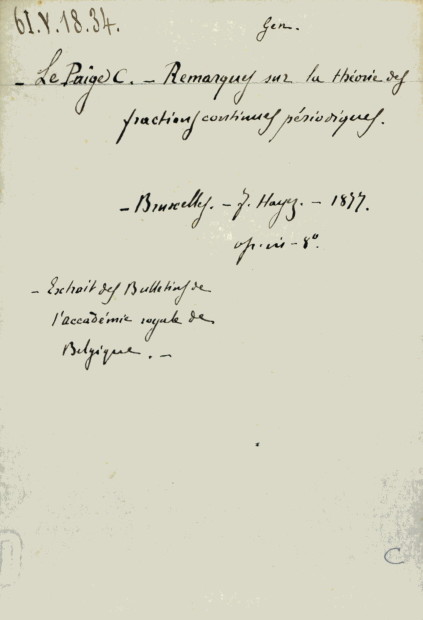 61.V.18.34.
Gen.
- Le Paige C. - Remarques sur la théorie des
fractions continues périodiques.
- Bruxelles. - F. Hayez. - 1877.
op. in - 8°.
- Extrait des Bulletins de
l'accadémie royale de
Belgique. -
C